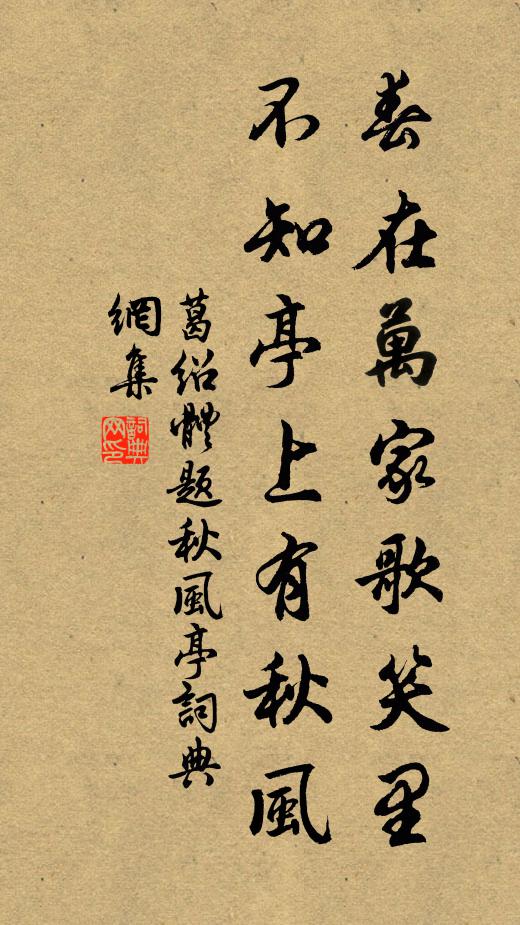 春在萬家歌笑里
不知亭上有秋風
葛绍體題秋風亭詞典
網集
詞典
网印